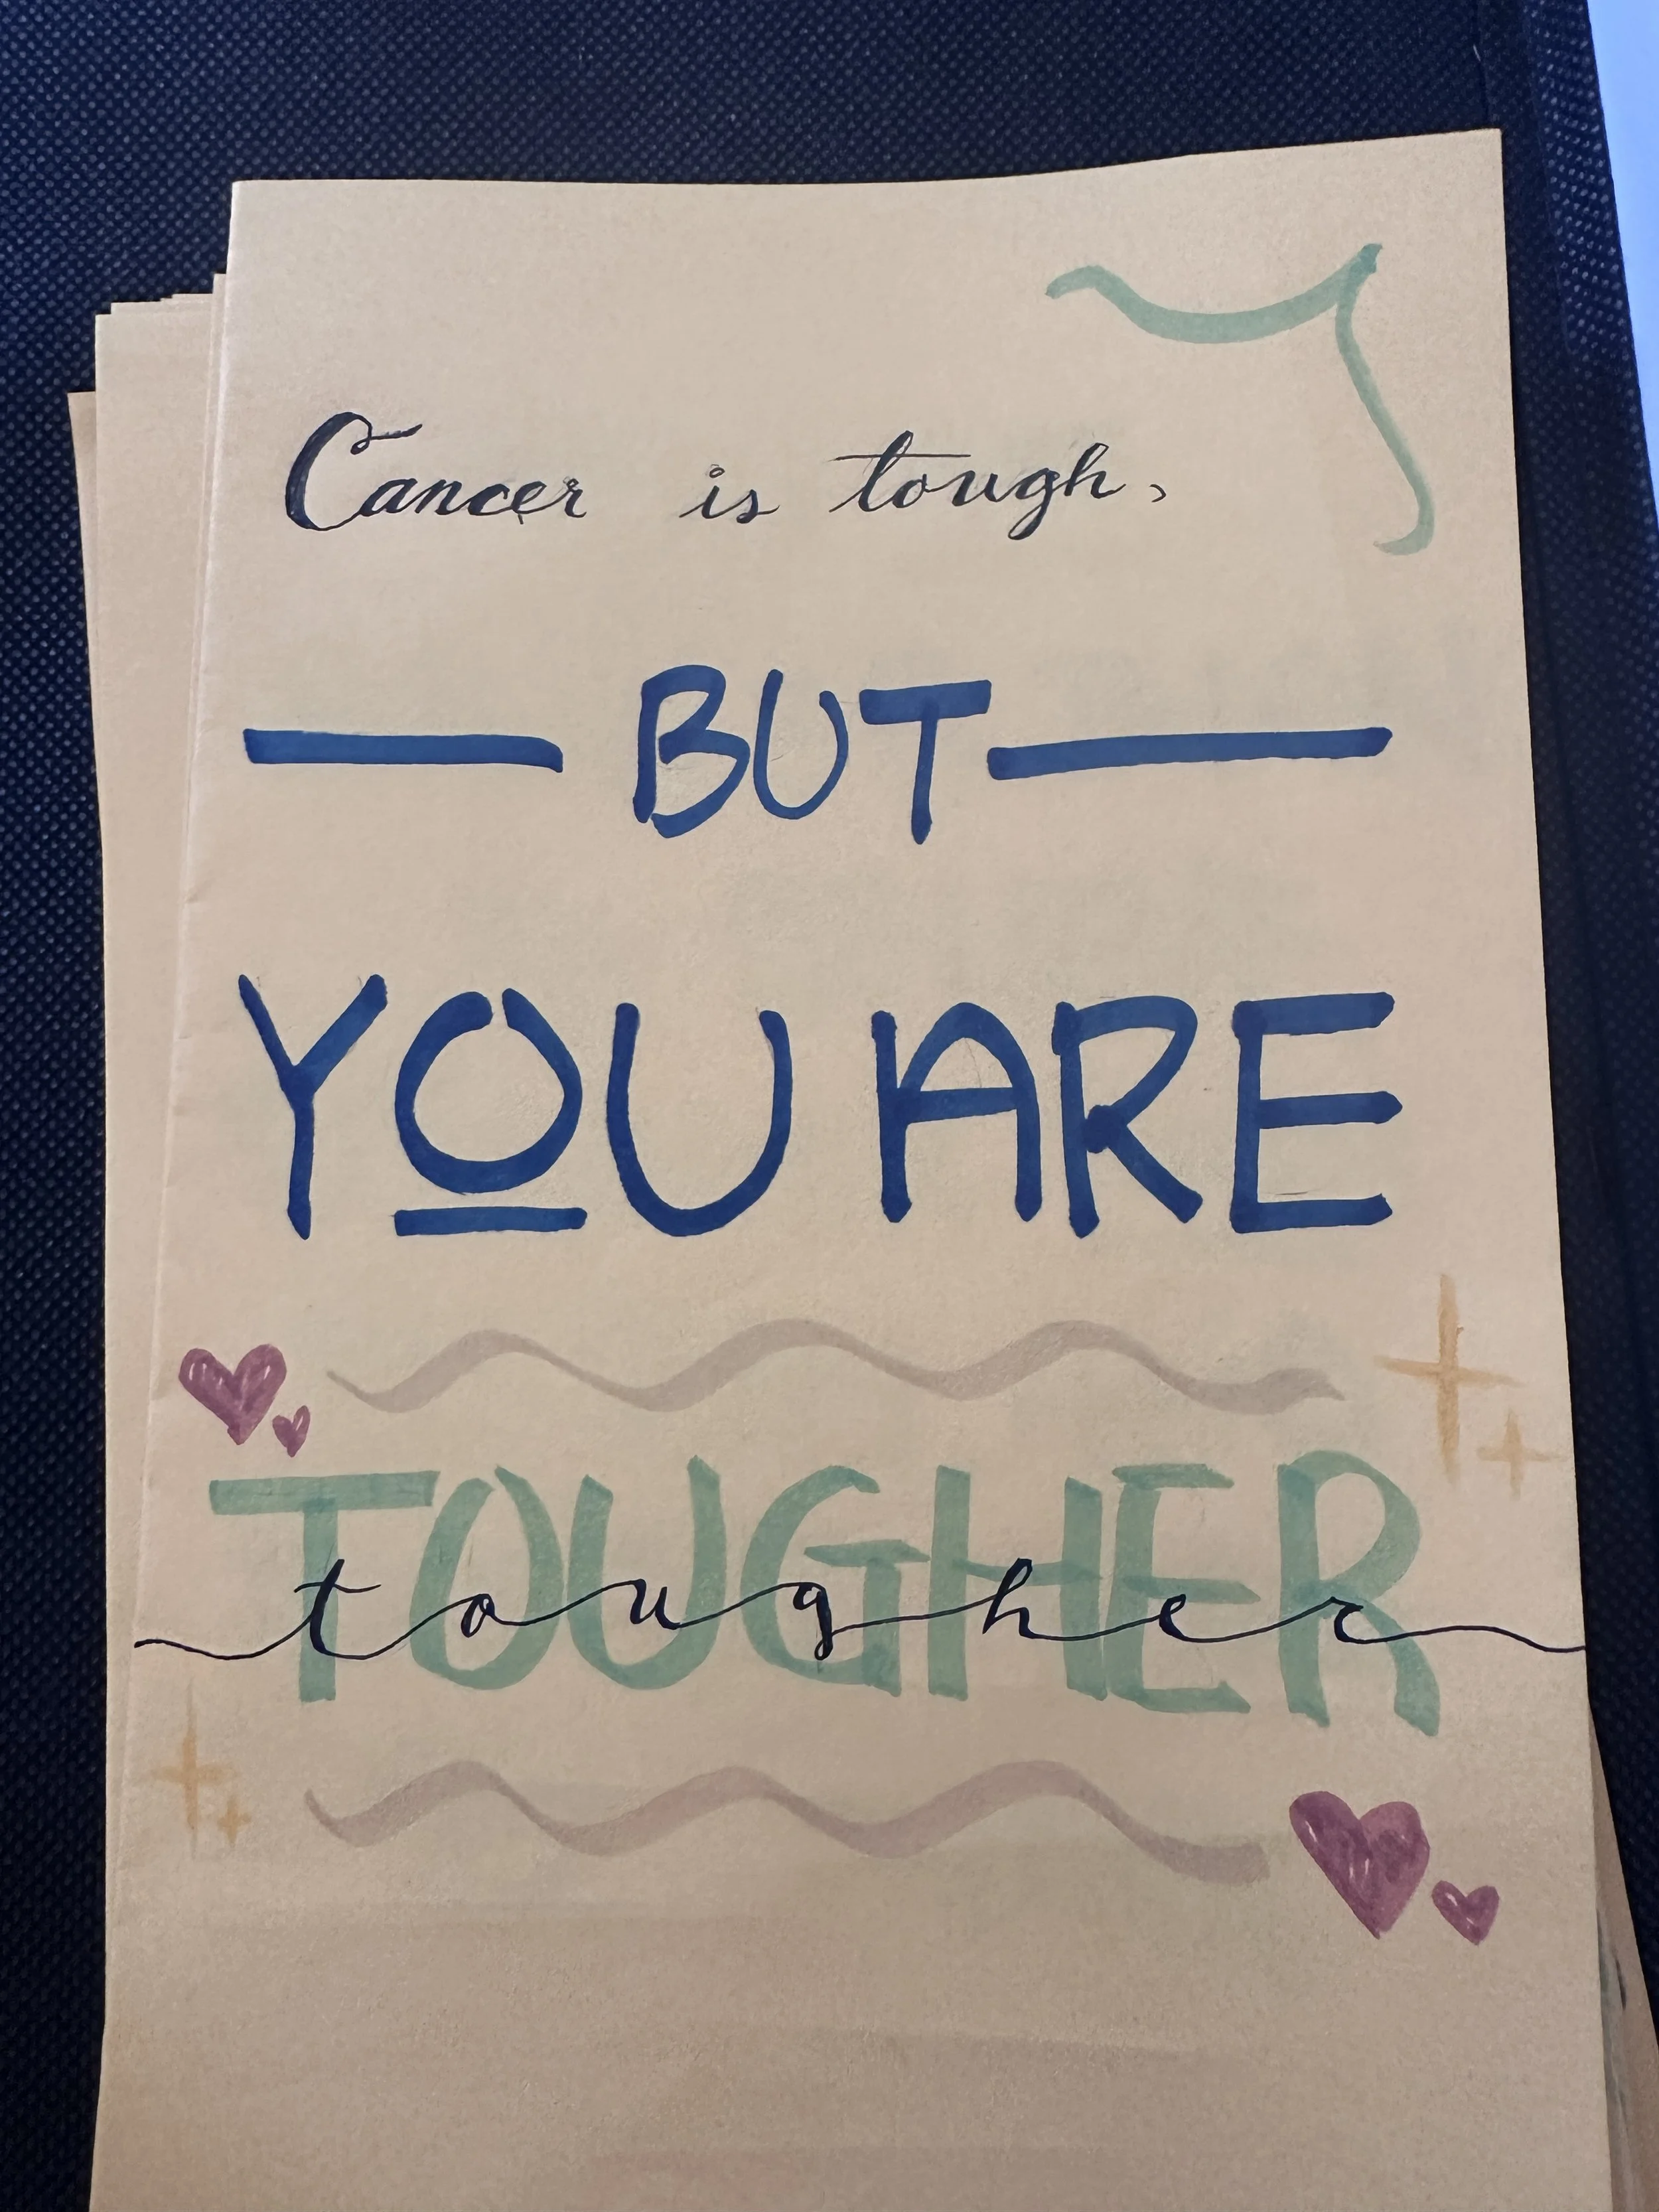 Cancer is tough,
BUT
YOU ARE
TOUGHER
tougher